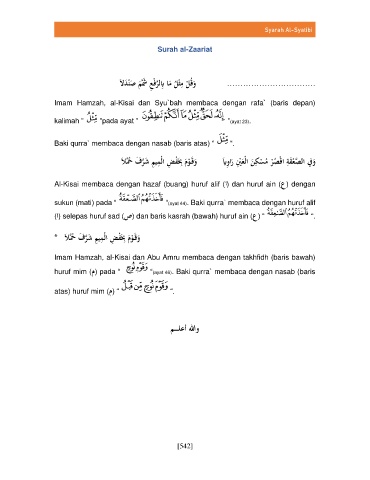 Syarah Al-Syatibi
Surah al-Zaariat
وَقُلْ مِثْلُ مَا بِالرَّفْعِ شَمَّمَ صَنْدَلاَ .................................
Imam Hamzah, al-Kisai dan Syu`bah membaca dengan rafa` (baris depan)
kalimah " مِّثْلُ "pada ayat " إِنَّهُۥ لَحَقٌّ مِّثْلُ مَآ أَنَّكُمْ تَنطِقُونَ "(ayat 23).
Baki qurra` membaca dengan nasab (baris atas) " مِّثْلَ ".
وَفِي الصَّعْقَةِ اقْصُرْ مُسْكِنَ الْعَيْنِ رَاوِيًا وَقَوْمَ بِخَفْضِ الْمِيمِ شَرَّفَ حُمَّلاَ
Al-Kisai membaca dengan hazaf (buang) huruf alif (ا) dan huruf ain (ع) dengan
sukun (mati) pada " فَأَخَذَتْهُمُ ٱلصَّعْقَةُ "(ayat 44). Baki qurra` membaca dengan huruf alif
(ا) selepas huruf sad (ص) dan baris kasrah (bawah) huruf ain (ع) " فَأَخَذَتْهُمُ ٱلصَّٰعِقَةُ ".
* وَقَوْمَ بِخَفْضِ الْمِيمِ شَرَّفَ حُمَّلاَ
Imam Hamzah, al-Kisai dan Abu Amru membaca dengan takhfidh (baris bawah)
huruf mim (م) pada " وَقَوْمِ نُوحٍ "(ayat 46). Baki qurra` membaca dengan nasab (baris
atas) huruf mim (م) " وَقَوْمَ نُوحٍ مِّن قَبْلُ ".
والله أعلم
[542]